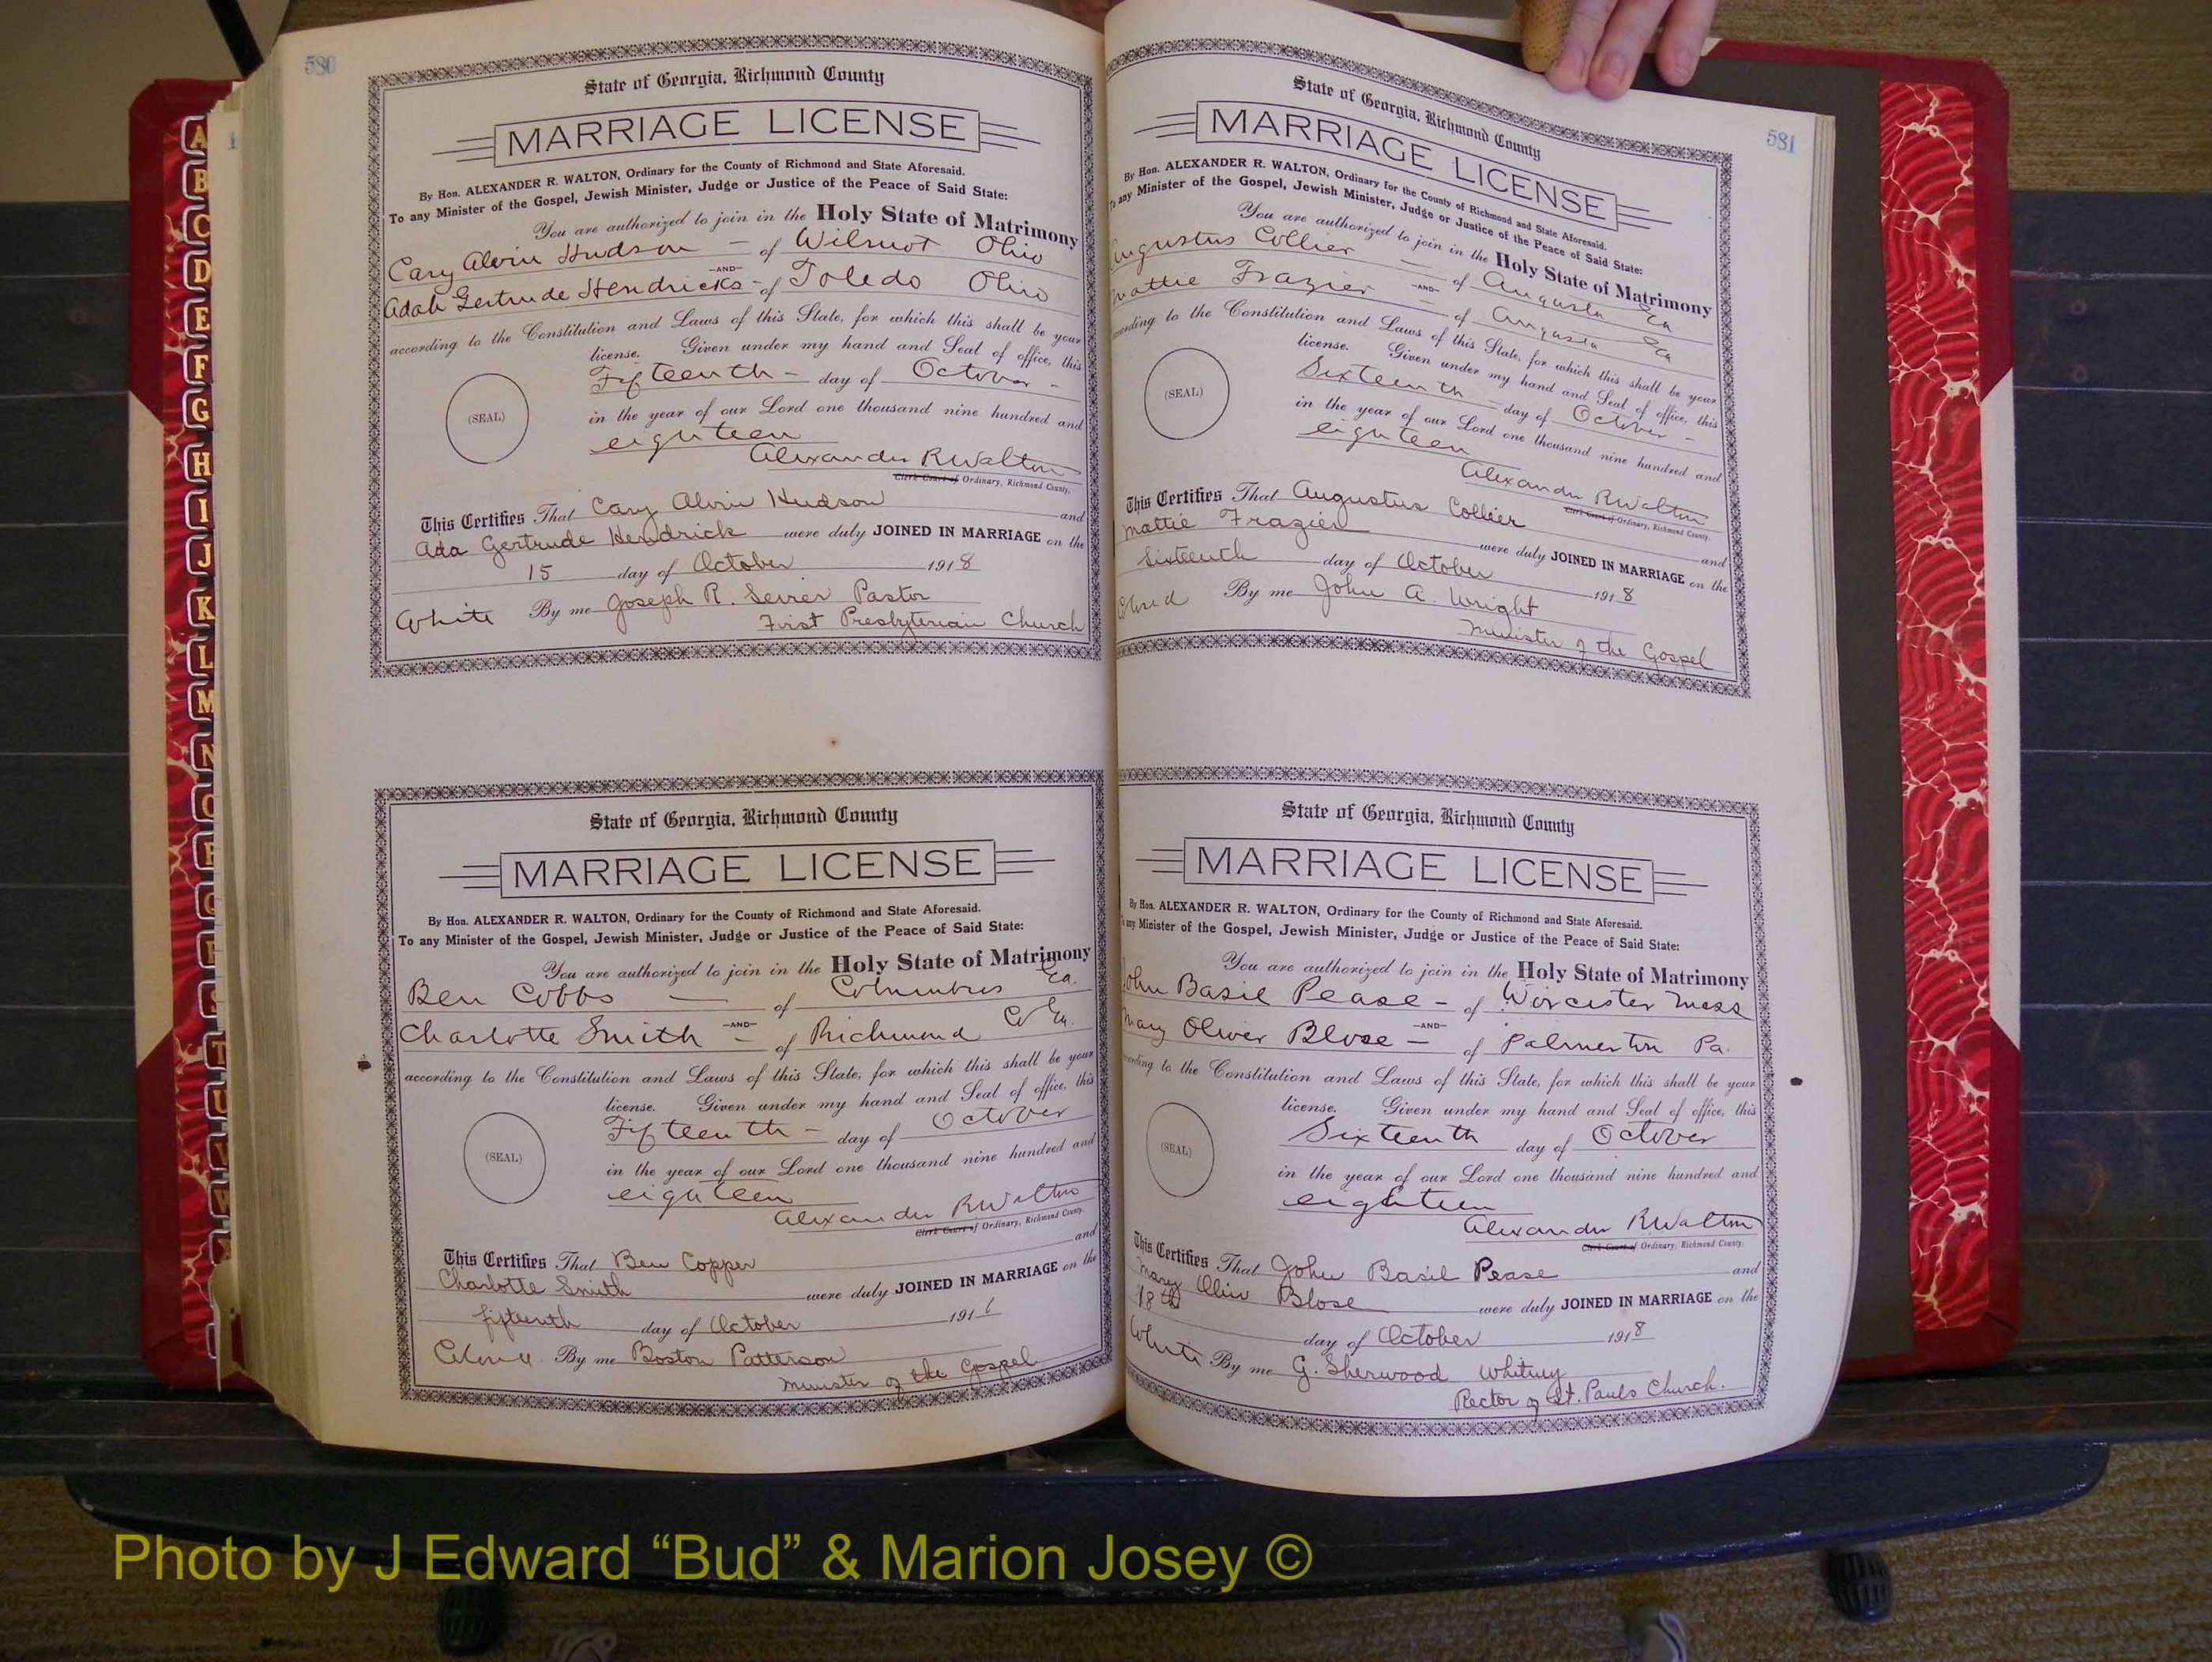 580
State of Georgia, Richmond County
MARRIAGE LICENSE
By Hon. ALEXANDER R. WALTON, Ordinary for the County of Richmond and State Aforesaid.
To any Minister of the Gospel, Jewish Minister, Judge or Justice of the Peace of Said State:
You are authorized to join in the Holy State of Matrimony
Cary Alvin Hudson — of Wilmot Ohio
—AND—
Adah Gertrude Hendricks - of Toledo Ohio
according to the Constitution and Laws of this State, for which this shall be your
license. Given under my hand and Seal of office, this
Fifteenth - day of October -
(SEAL)
in the year of our Lord one thousand nine hundred and
eighteen
Alexander R Walton
Clerk Court of Ordinary, Richmond County.
This Certifies That Cary Alvin Hudson and
Ada Gertrude Hendrick were duly JOINED IN MARRIAGE on the
15 day of October 1918
White By me Joseph R. Sevier Pastor
First Presbyterian Church
State of Georgia, Richmond County
MARRIAGE LICENSE
By Hon. ALEXANDER R. WALTON, Ordinary for the County of Richmond and State Aforesaid.
To any Minister of the Gospel, Jewish Minister, Judge or Justice of the Peace of Said State:
You are authorized to join in the Holy State of Matrimony
Ben Cobbs — of Columbus Ga.
—AND—
Charlotte Smith - of Richmond Co Ga.
according to the Constitution and Laws of this State, for which this shall be your
license. Given under my hand and Seal of office, this
Fifteenth - day of October
(SEAL)
in the year of our Lord one thousand nine hundred and
eighteen
Alexander R Walton
Clerk Court of Ordinary, Richmond County.
This Certifies That Ben Copper and
Charlotte Smith were duly JOINED IN MARRIAGE on the
fifteenth day of October 191
By me Boston Patterson
Minister of the Gospel
581
State of Georgia, Richmond County
MARRIAGE LICENSE
By Hon. ALEXANDER R. WALTON, Ordinary for the County of Richmond and State Aforesaid.
To any Minister of the Gospel, Jewish Minister, Judge or Justice of the Peace of Said State:
You are authorized to join in the Holy State of Matrimony
Augustus Collier — of Augusta Ga
—AND—
Mattie Frazier — of Augusta Ga
according to the Constitution and Laws of this State, for which this shall be your
license. Given under my hand and Seal of office, this
Sixteenth - day of October -
(SEAL)
in the year of our Lord one thousand nine hundred and
eighteen
Alexander R Walton
Clerk Court of Ordinary, Richmond County.
This Certifies That Augustus Collier and
Mattie Frazier were duly JOINED IN MARRIAGE on the
Sixteenth day of October 1918
By me John A. Wright
Minister of the Gospel
State of Georgia, Richmond County
MARRIAGE LICENSE
By Hon. ALEXANDER R. WALTON, Ordinary for the County of Richmond and State Aforesaid.
To any Minister of the Gospel, Jewish Minister, Judge or Justice of the Peace of Said State:
You are authorized to join in the Holy State of Matrimony
John Basil Pease - of Worcester Mass
—AND—
Mary Oliver Blose - of Palmerton Pa.
according to the Constitution and Laws of this State, for which this shall be your
license. Given under my hand and Seal of office, this
Sixteenth day of October
(SEAL)
in the year of our Lord one thousand nine hundred and
eighteen
Alexander R Walton
Clerk Court of Ordinary, Richmond County.
This Certifies That John Basil Pease and
Mary Blose were duly JOINED IN MARRIAGE on the
18th day of October 1918
White By me G. Sherwood Whitney
Rector of St. Pauls Church.
A
B
C
D
E
F
G
H
I
J
K
L
M
N
O
P
Q
R
S
T
U
V
W
Photo by J Edward “Bud” & Marion Josey ©